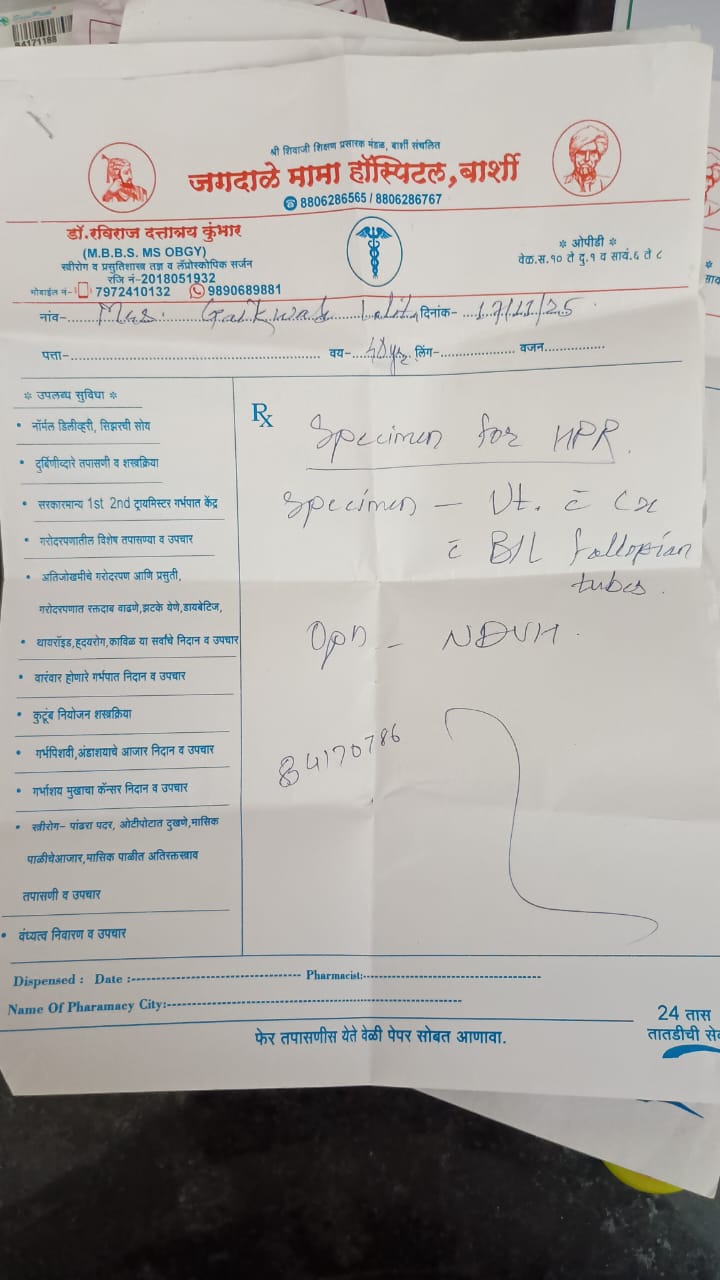 84171188
श्री शिवाजी शिक्षण प्रसारक मंडळ, बार्शी संचलित
जगदाळे मामा हॉस्पिटल, बार्शी
8806286565 / 8806286767
डॉ. रविराज दत्तात्रय कुंभार
(M.B.B.S. MS OBGY)
स्त्रीरोग व प्रसुतिशास्त्र तज्ञ व लॅप्रोस्कोपिक सर्जन
रजि नं-2018051932
मोबाईल नं- 7972410132 9890689881
* ओपीडी *
वेळ.स.१० ते दु.१ व सायं.६ ते ८
नांव- Mrs. Gaikwad दिनांक- 17/11/25
पत्ता- वय- 40 yrs. लिंग- वजन
* उपलब्ध सुविधा *
• नॉर्मल डिलीव्हरी, सिझरची सोय
• दुर्बिणीव्दारे तपासणी व शस्त्रक्रिया
• सरकारमान्य 1st 2nd ट्रायमिस्टर गर्भपात केंद्र
• गरोदरपणातील विशेष तपासण्या व उपचार
• अतिजोखमीचे गरोदरपण आणि प्रसुती,
गरोदरपणात रक्तदाब वाढणे,झटके येणे,डायबेटिज,
• थायरॉइड,ह्दयरोग,काविळ या सर्वांचे निदान व उपचार
• वारंवार होणारे गर्भपात निदान व उपचार
• कुटूंब नियोजन शस्त्रक्रिया
• गर्भपिशवी,अंडाशयाचे आजार निदान व उपचार
• गर्भाशय मुखाचा कॅन्सर निदान व उपचार
• स्त्रीरोग- पांढरा पदर, ओटीपोटात दुखणे,मासिक
पाळीचेआजार,मासिक पाळीत अतिरक्तस्त्राव
तपासणी व उपचार
• वंध्यत्व निवारण व उपचार
Rx
Specimen for HPR.
Specimen - Ut. c̄ Cx
c̄ B/L fallopian
tubes.
Opn - NDVH.
84170786
Dispensed : Date : Pharmacist:
Name Of Pharamacy City:
24 तास
तातडीची
फेर तपासणीस येते वेळी पेपर सोबत आणावा.